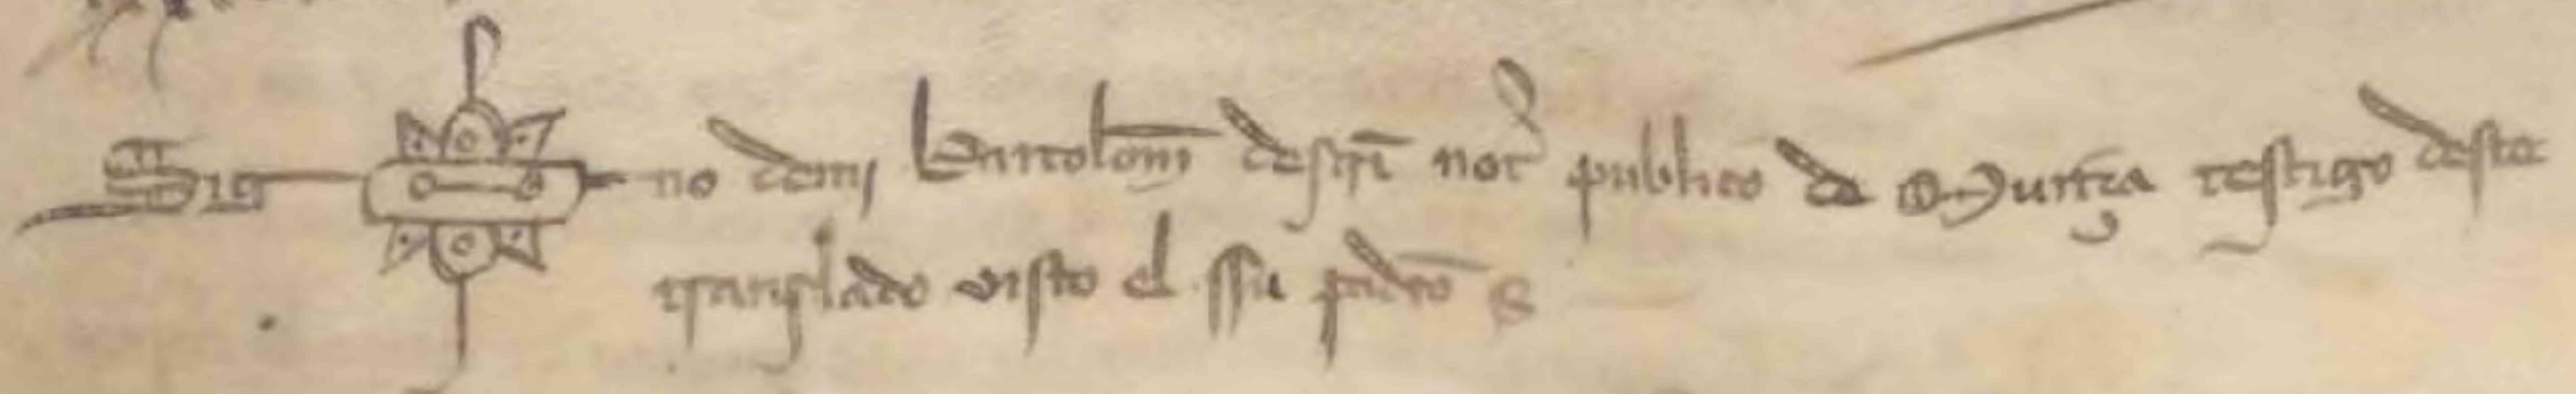 Sig no de mj Bartolom not publico de Murçia testigo deste
translado visto el ssu padro